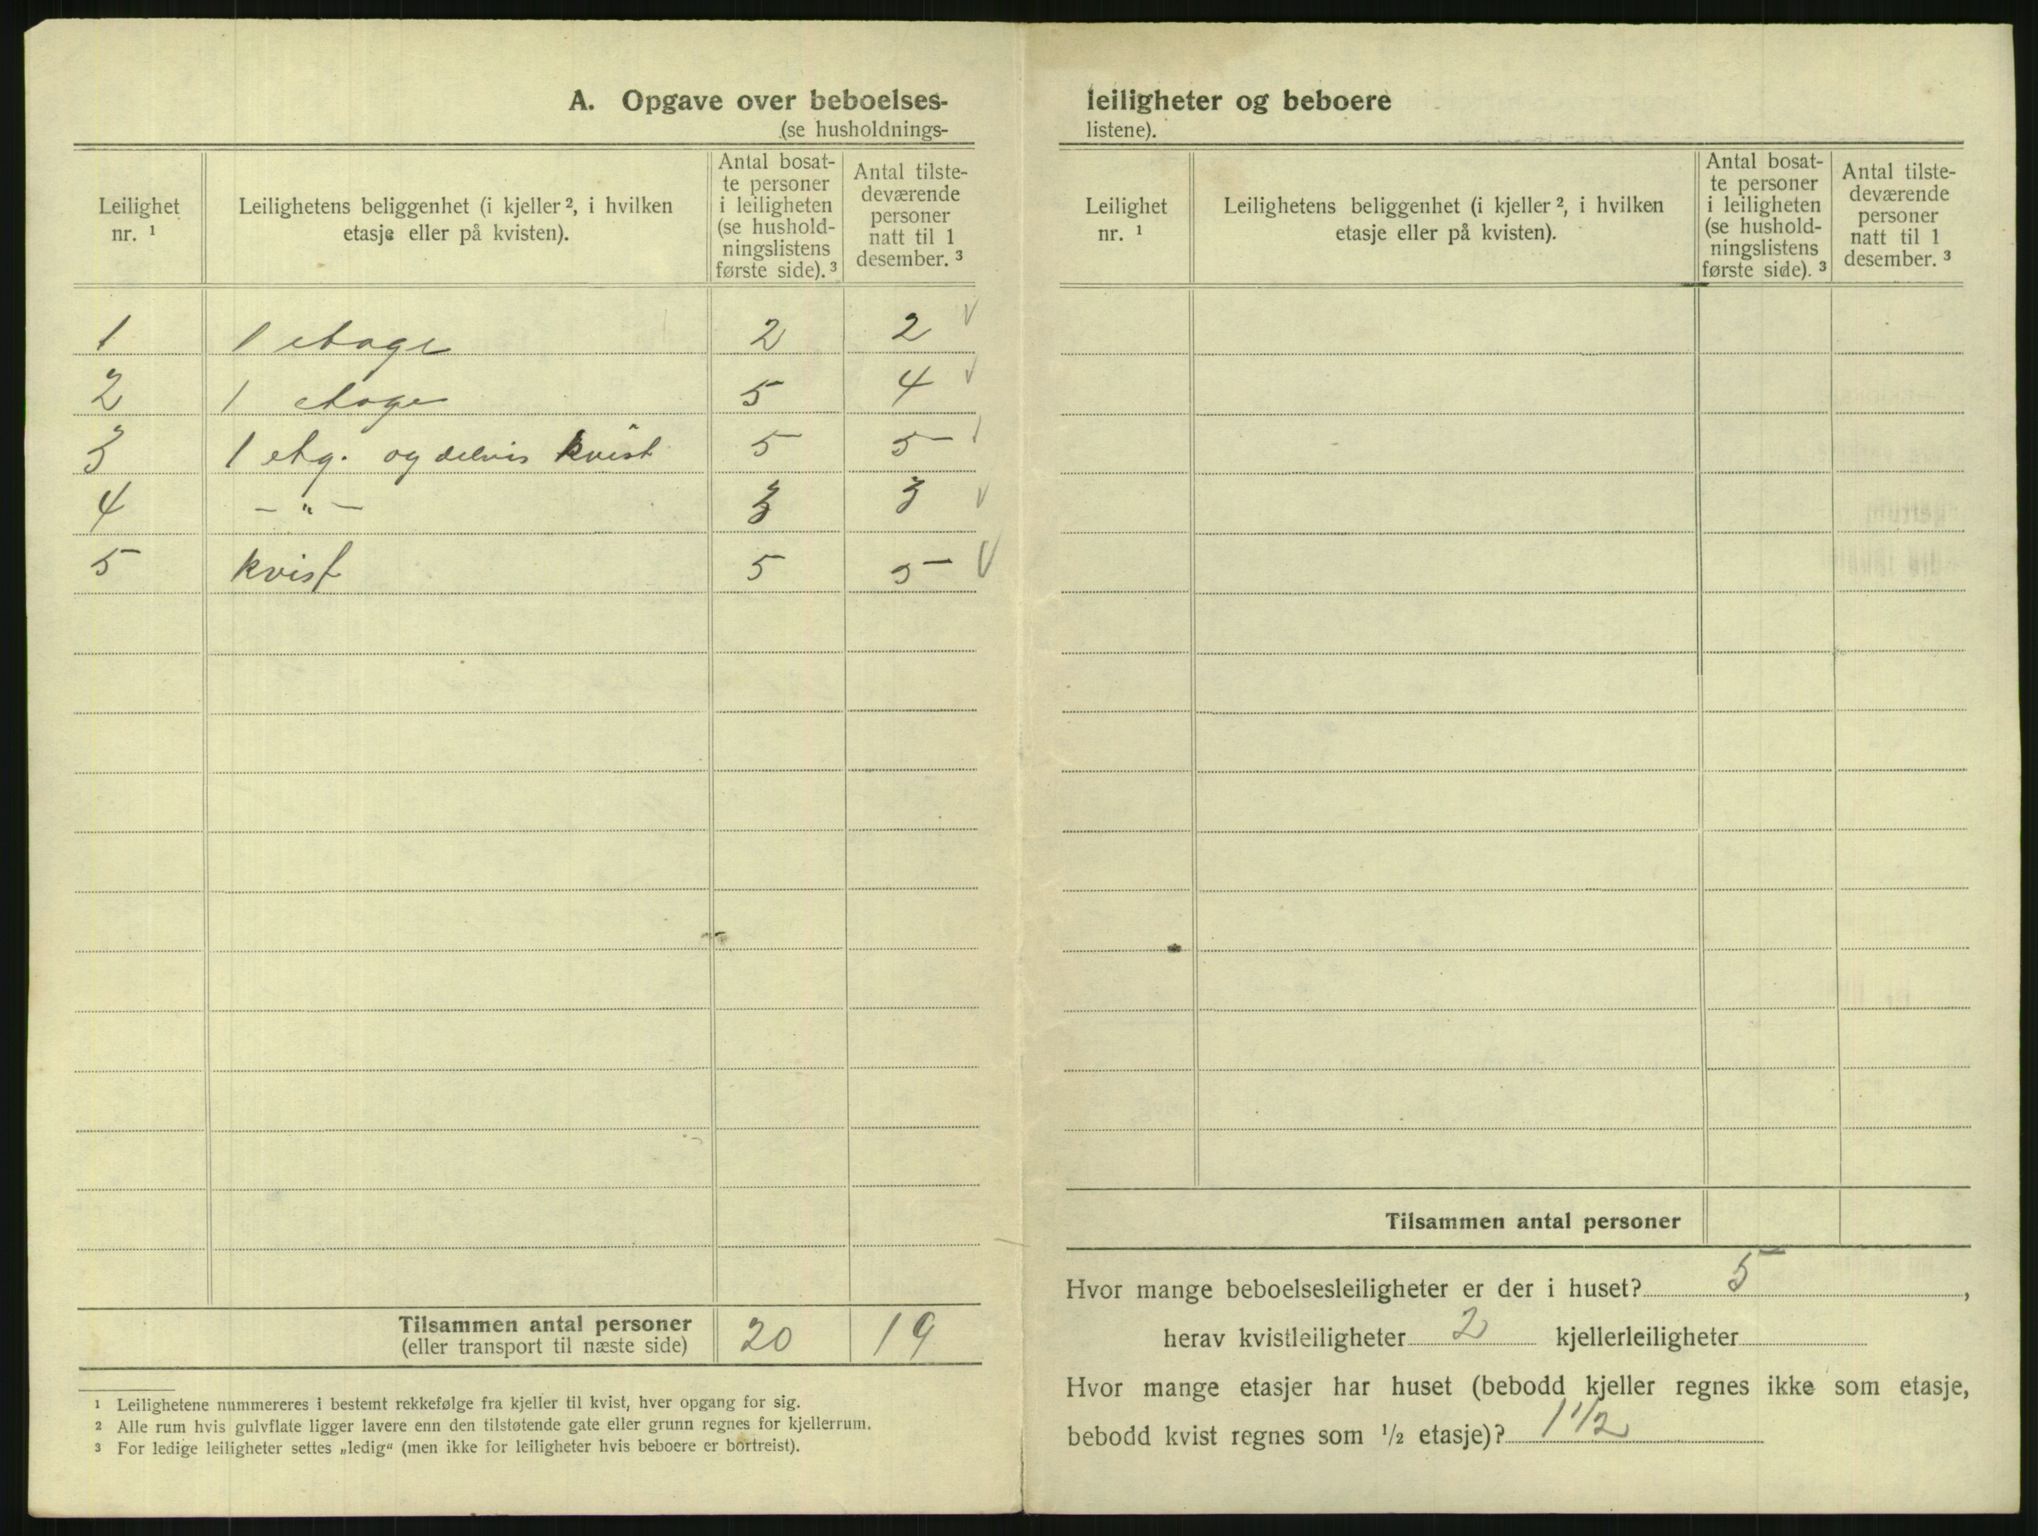 A. Opgave over beboelses-
(se husholdnings-
Leilighet nr. ¹ | Leilighetens beliggenhet (i kjeller ², i hvilken etasje eller på kvisten). | Antal bosatte personer i leiligheten (se husholdningslistens første side). ³ | Antal tilstedeværende personer natt til 1 desember. ³
1 | 1 etage | 2 | 2 √
2 | 1 etage | 5 | 4 √
3 | 1 etg. og delvis kvist | 5 | 5 √
4 | – „ – | 3 | 3 √
5 | kvist | 5 | 5 √
Tilsammen antal personer | 20 | 19
(eller transport til næste side)
¹ Leilighetene nummereres i bestemt rekkefølge fra kjeller til kvist, hver opgang for sig.
² Alle rum hvis gulvflate ligger lavere enn den tilstøtende gate eller grunn regnes for kjellerrum.
³ For ledige leiligheter settes „ledig“ (men ikke for leiligheter hvis beboere er bortreist).
leiligheter og beboere
listene).
Leilighet nr. ¹ | Leilighetens beliggenhet (i kjeller ², i hvilken etasje eller på kvisten). | Antal bosatte personer i leiligheten (se husholdningslistens første side). ³ | Antal tilstedeværende personer natt til 1 desember. ³
Tilsammen antal personer
Hvor mange beboelsesleiligheter er der i huset? 5,
herav kvistleiligheter 2 kjellerleiligheter
Hvor mange etasjer har huset (bebodd kjeller regnes ikke som etasje,
bebodd kvist regnes som ½ etasje)? 1 1/2